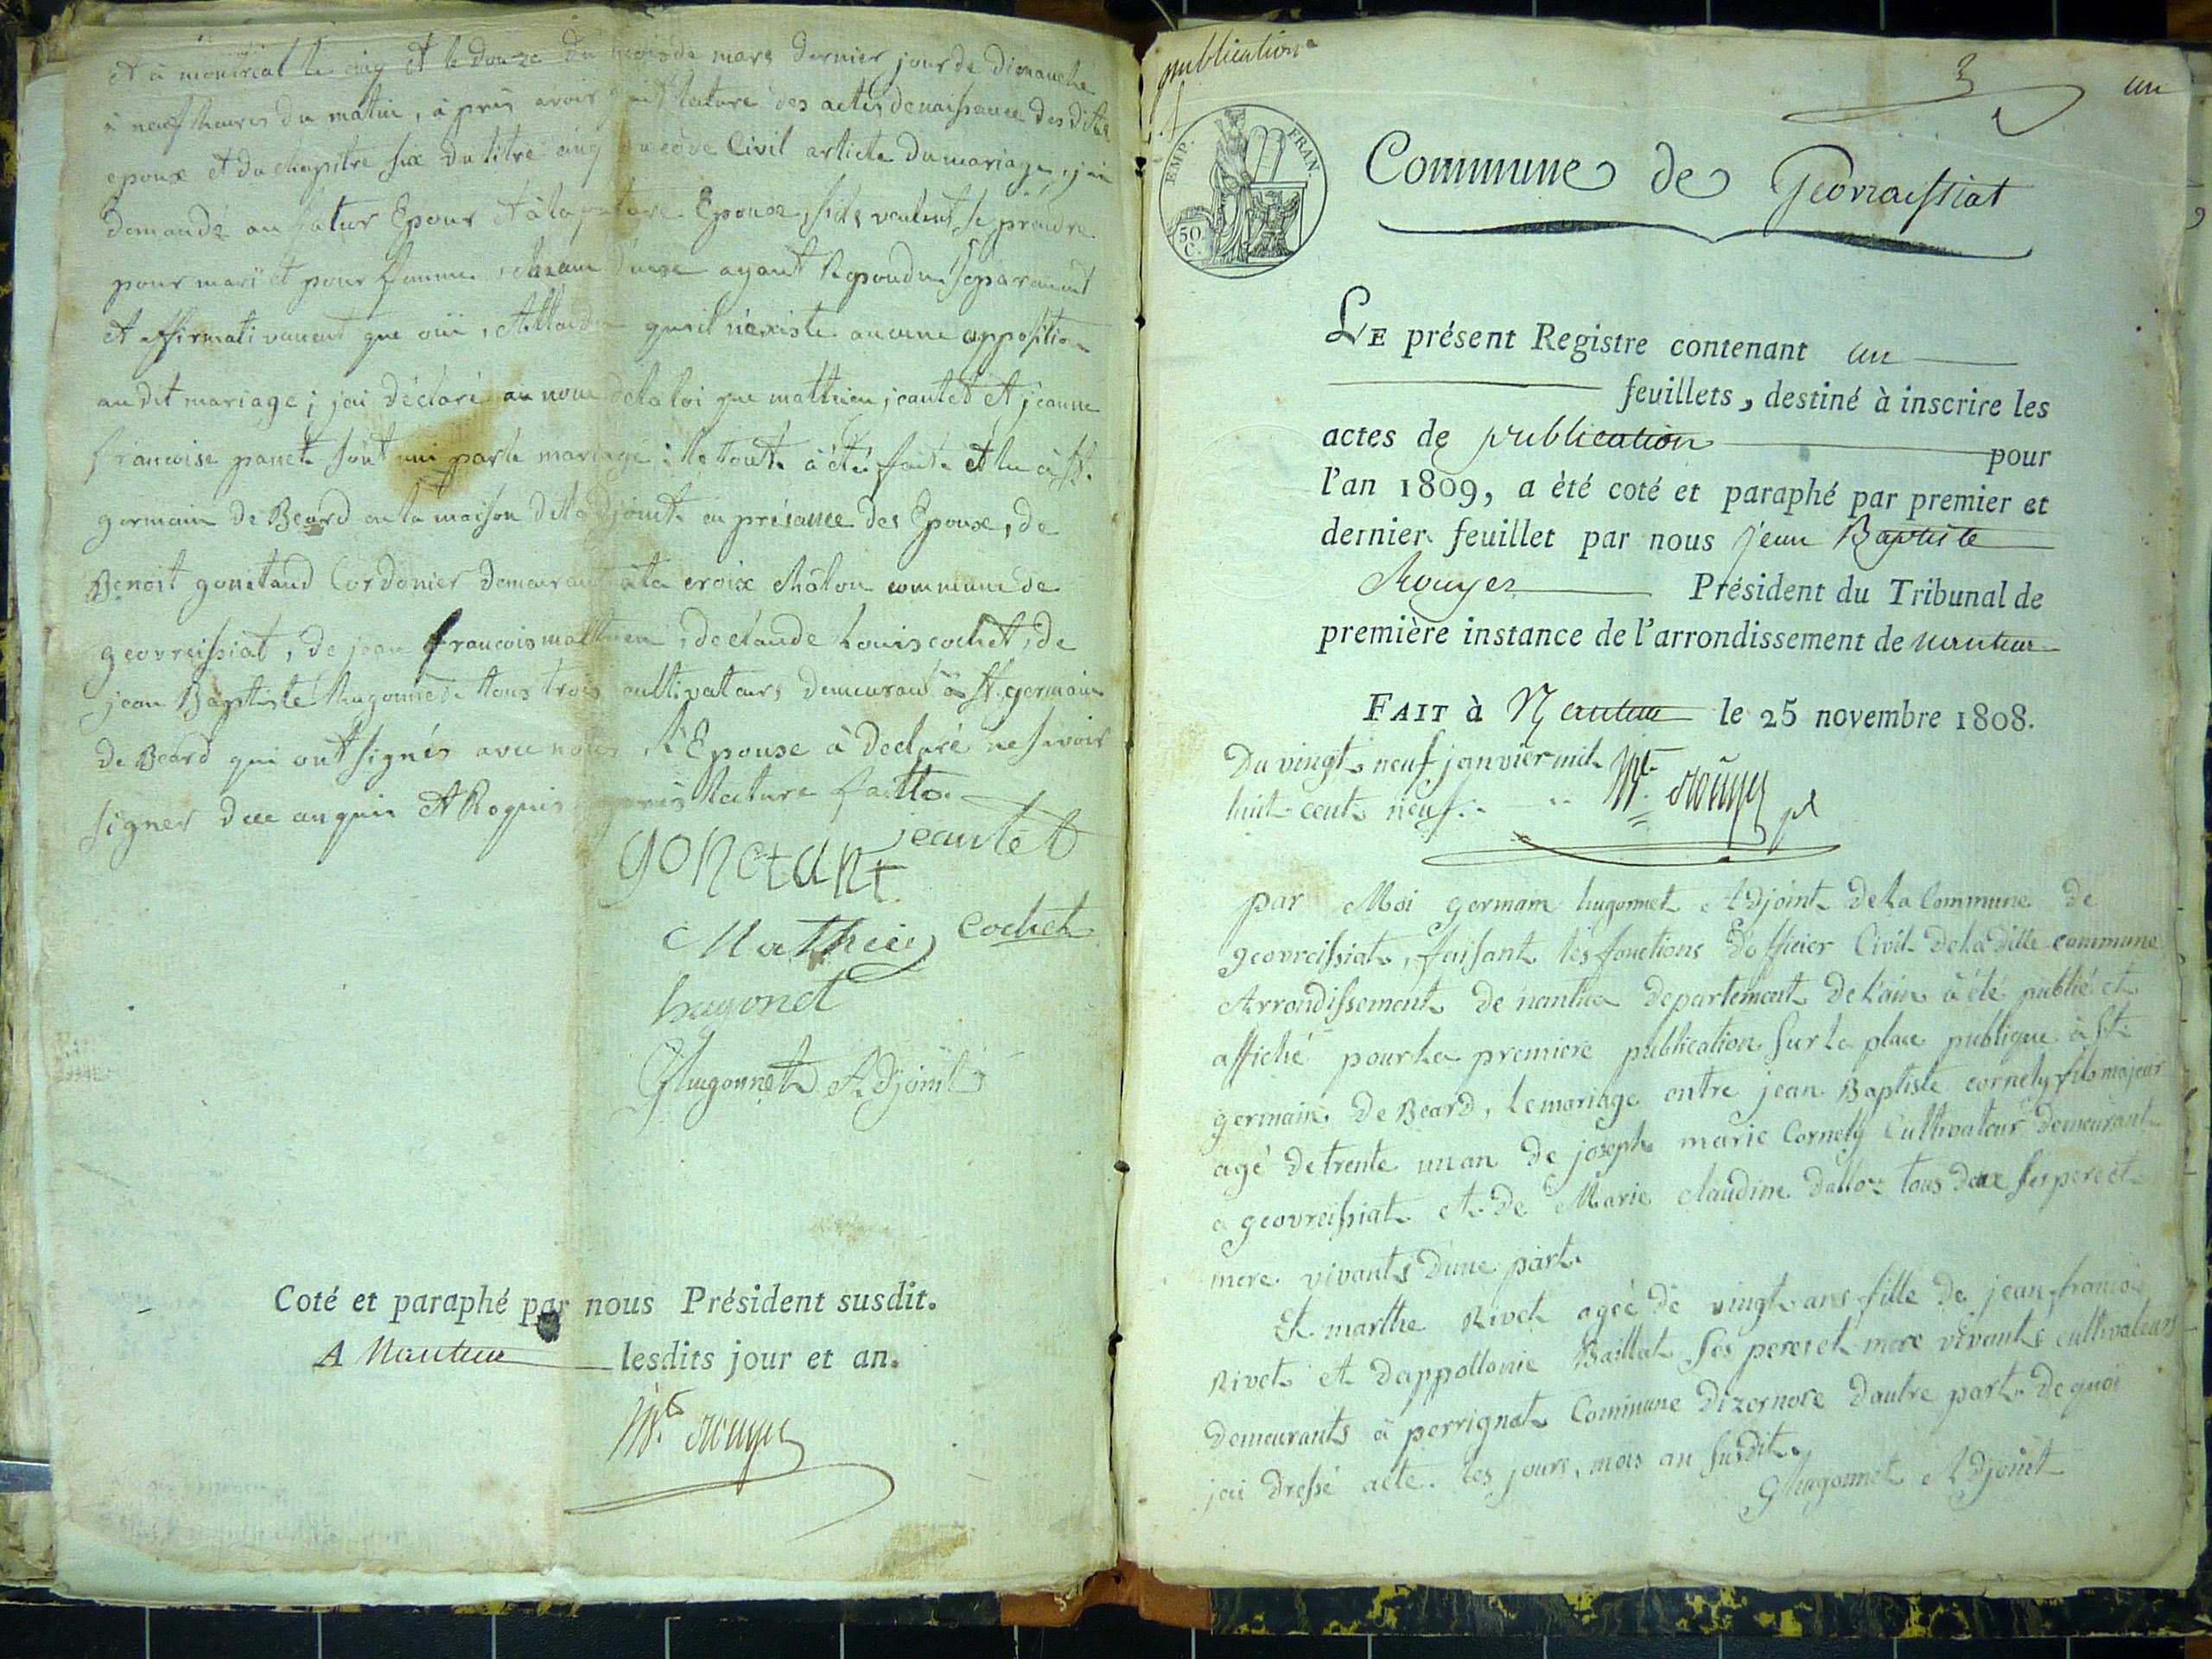 et à montréal le cinq et le douze du mois de mars dernier jour de dimanche
à neuf heures du matin, à près avoir fait lecture des actes de naissance des dits
epoux et du chapitre six du titre cinq du code Civil article du mariage, j'ai
demandé au futur Epoux et à la future Epouse, s'ils veulent se prendre
pour marï et pour femme, chacun d'eux ayant Repondu separament
et affirmativement que oüi, Attendu quil n'existe aucune opposition
au dit mariage; j'ai déclaré au nom de la loi que mathieu jeantet et jeanne
francoise panet sont uni par le mariage: le tout à été fait et lu à st.
germain de Beard en la maison de l'adjoint en présance des Epoux, de
Benoit gonetand Cordonier demeurant à la croix châlon commune de
geovreissiat, de jean francois mathieu, de claude Louis cochet, de
jean Baptiste hugonnet tous trois cultivateurs demeurant à st. germain
de Beard qui ont signés avec nous, l'Epouse à declaré ne savoir
signer de ce enquis et Requis après lecture faitte.
jeantet
gonetant
Mathieu cochet
hugonet
Ghugonnet Adjoint
Coté et paraphé par nous Président susdit.
A Nantua lesdits jour et an.
Rouyer
publication
3
un
EMP. FRAN.
50 C.
Commune de Geovreissiat
LE présent Registre contenant un
feuillets, destiné à inscrire les
actes de publication pour
l'an 1809, a été coté et paraphé par premier et
dernier feuillet par nous jean Baptiste
Rouyer Président du Tribunal de
première instance de l'arrondissement de nantua
FAIT à Nantua le 25 novembre 1808.
Du vingt neuf janvier mil
huit cent neuf. Rouyer pt
par Moi germain hugonnet Adjoint de la Commune de
geovreissiat, faisant les fonctions D'officier Civil de la ditte commune
Arrondissement de nantua departement de l'ain à été publié et
affiché pour la premiere publication sur la place publique à st
germain de Beard, le mariage entre jean Baptiste cornely fils majeur
agé de trente un an de joseph marie Cornely Cultivateur demeurant
a geovreissiat et de Marie claudine dalloz tous deux ses pere et
mere vivants d'une part.
Et marthe Rivet ageé de vingt ans fille de jean francois
Rivet et dappollonie Baillat ses peres et mere vivants cultivateurs
demeurants à perrignat Commune dizernore dautre part. de quoi
jai dressé acte. les jours, mois an susdit.
Ghugonnet Adjoint